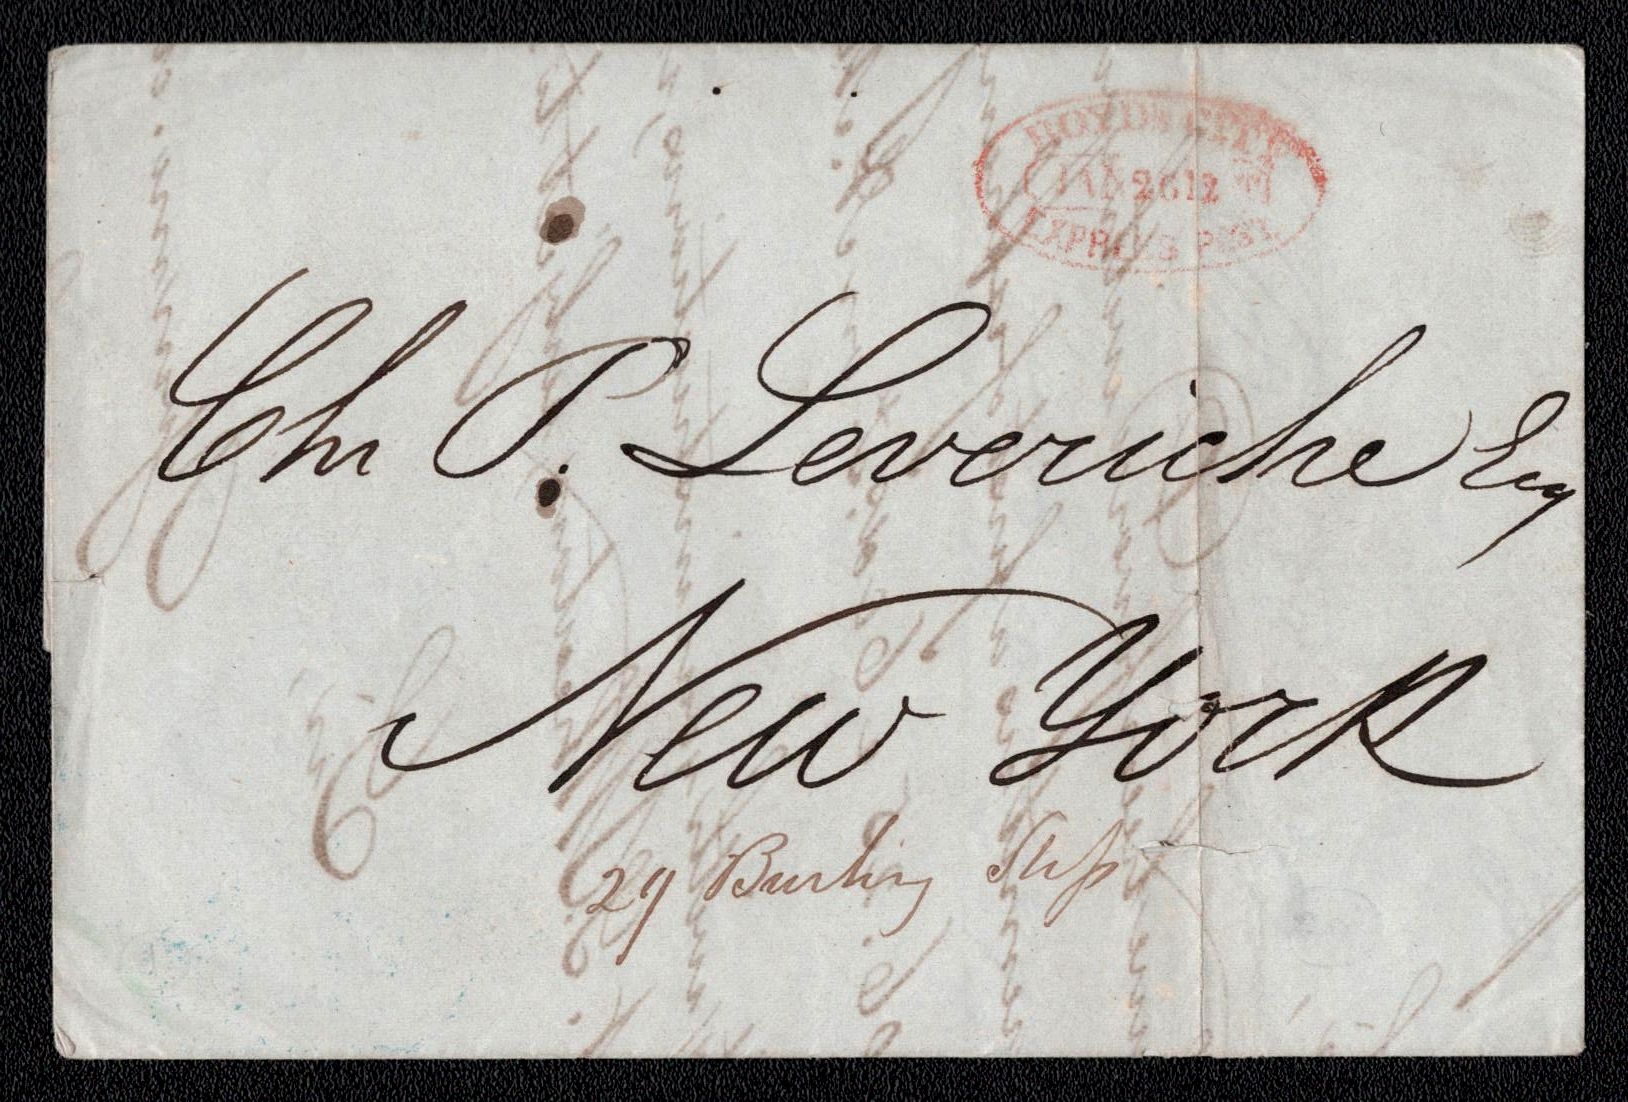 BOYD'S CITY
JAN 26 12
EXPRESS POST.
Ch P. Leveriche Esq
New York
29 Burling Slip